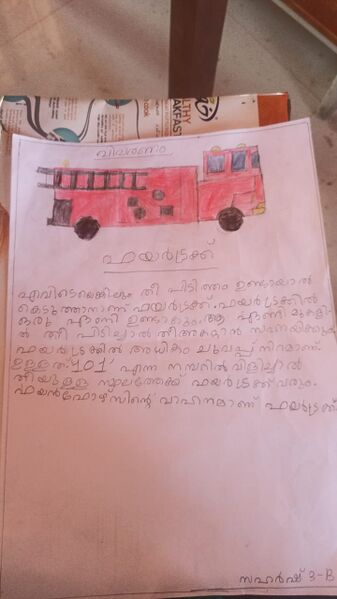 വിവരണം
ഫയർട്രക്ക്
എവിടെയെങ്കിലും തീ പിടിത്തം ഉണ്ടായാൽ
കെടുത്താനാണ് ഫയർട്രക്ക്. ഫയർട്രക്കിൽ
ഒരു ഏണി ഉണ്ടാകും. ആ ഏണി മുകളി
ൽ തീ പിടിച്ചാൽ തീ അണക്കാൻ സഹായിക്കും
ഫയർട്രക്കിൽ അധികം ചുവപ്പ് നിറമാണ്.
ഉള്ളത് '101' എന്ന നമ്പറിൽ വിളിച്ചാൽ
തീയുള്ള സ്ഥലത്തേക്ക് ഫയർട്രക്ക് വരും.
ഫയൻഫോഴ്സിന്റെ വാഹനമാണ് ഫയർട്രക്ക്
സഹർഷ് 3-B